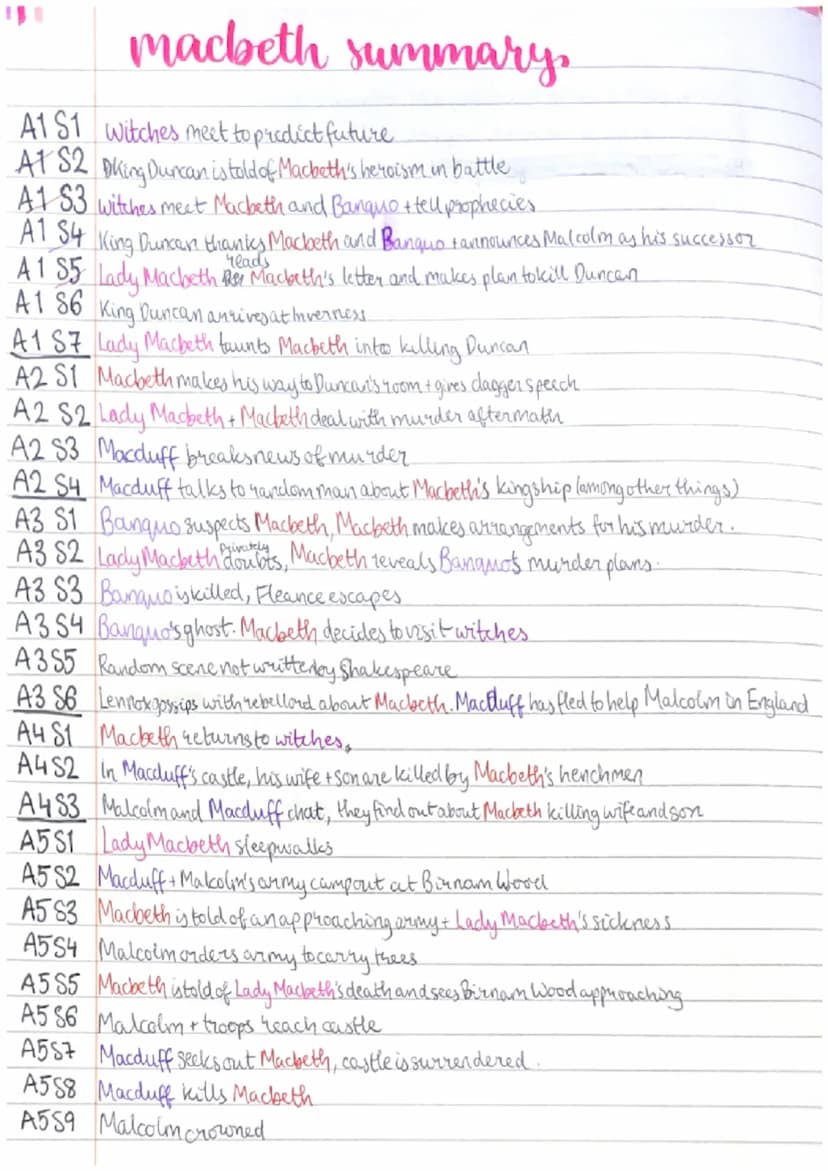 macbeth summary.
A1 S1 Witches meet to predict future
A1 S2 King Duncan is told of Macbeth's heroism in battle
A1 S3 Witches meet Macbeth and Banquo + tell prophecies
A1 S4 King Duncan thanks Macbeth and Banquo + announces Malcolm as his successor
A1 S5 Lady Macbeth reads Macbeth's letter and makes plan to kill Duncan
A1 S6 King Duncan arrives at Inverness
A1 S7 Lady Macbeth taunts Macbeth into killing Duncan
A2 S1 Macbeth makes his way to Duncan's room + gives dagger speech
A2 S2 Lady Macbeth + Macbeth deal with murder aftermath
A2 S3 Macduff breaks news of murder
A2 S4 Macduff talks to random man about Macbeth's kingship (among other things)
A3 S1 Banquo suspects Macbeth, Macbeth makes arrangements for his murder.
A3 S2 Lady Macbeth privately doubts, Macbeth reveals Banquo's murder plans.
A3 S3 Banquo is killed, Fleance escapes
A3 S4 Banquo's ghost. Macbeth decides to visit witches
A3 S5 Random scene not written by Shakespeare
A3 S6 Lennox gossips with rebel lord about Macbeth. Macduff has fled to help Malcolm in England
A4 S1 Macbeth returns to witches.
A4 S2 In Macduff's castle, his wife + son are killed by Macbeth's henchmen
A4 S3 Malcolm and Macduff chat, they find out about Macbeth killing wife and son
A5 S1 Lady Macbeth sleepwalks
A5 S2 Macduff + Malcolm's army camp out at Birnam Wood
A5 S3 Macbeth is told of an approaching army + Lady Macbeth's sickness
A5 S4 Malcolm orders army to carry trees
A5 S5 Macbeth is told of Lady Macbeth's death and sees Birnam Wood approaching
A5 S6 Malcolm + troops reach castle
A5 S7 Macduff seeks out Macbeth, castle is surrendered.
A5 S8 Macduff kills Macbeth
A5 S9 Malcolm crowned